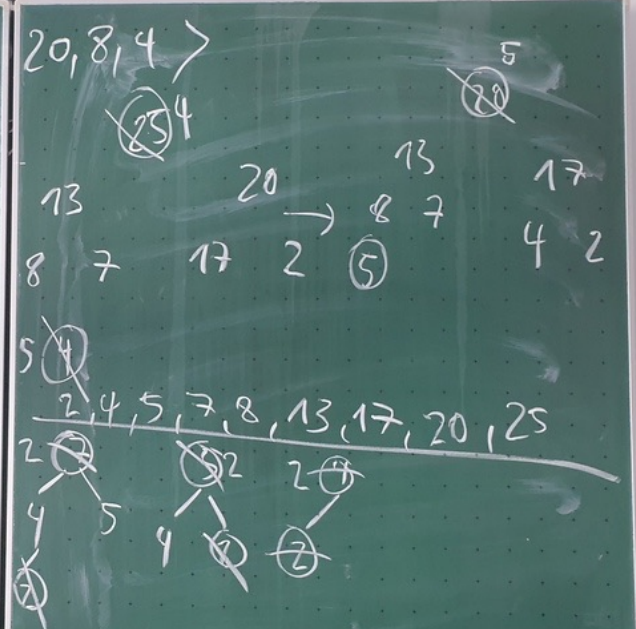 20, 8, 4 >
5
25 4
20
13
20
13
17
8 7
→ 8 7
17 2
5
4 2
5 4
2, 4, 5, 7, 8, 13, 17, 20, 25
2 7
5 2
2 4
4 5
4 2
2
7